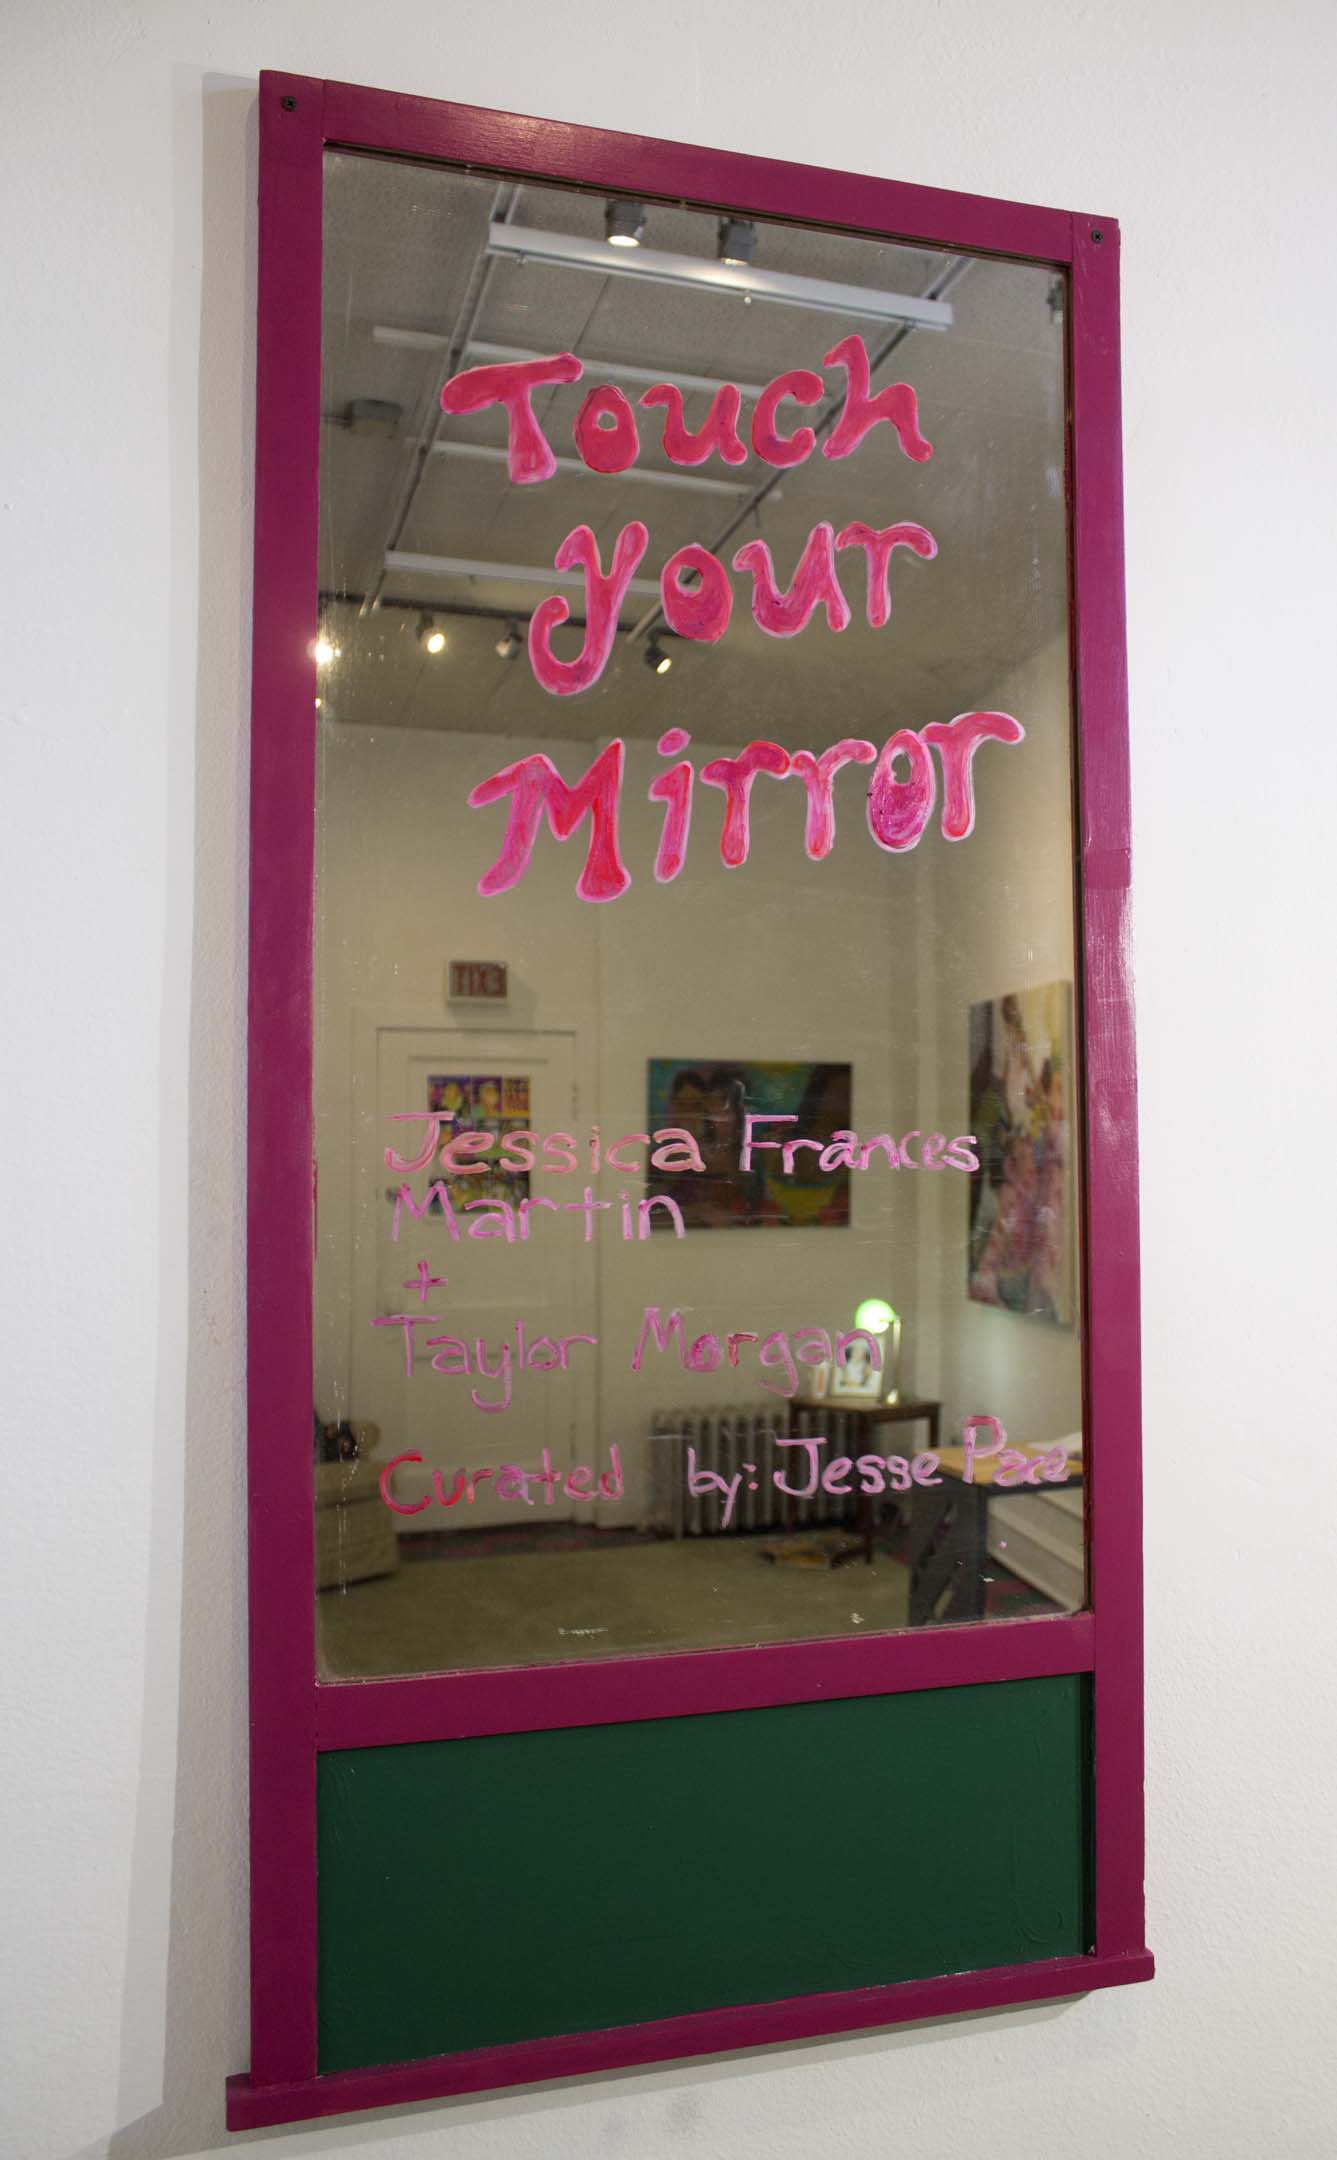 Touch
your
Mirror
EXIT
Jessica Frances
Martin
+
Taylor Morgan
Curated by: Jesse Pace